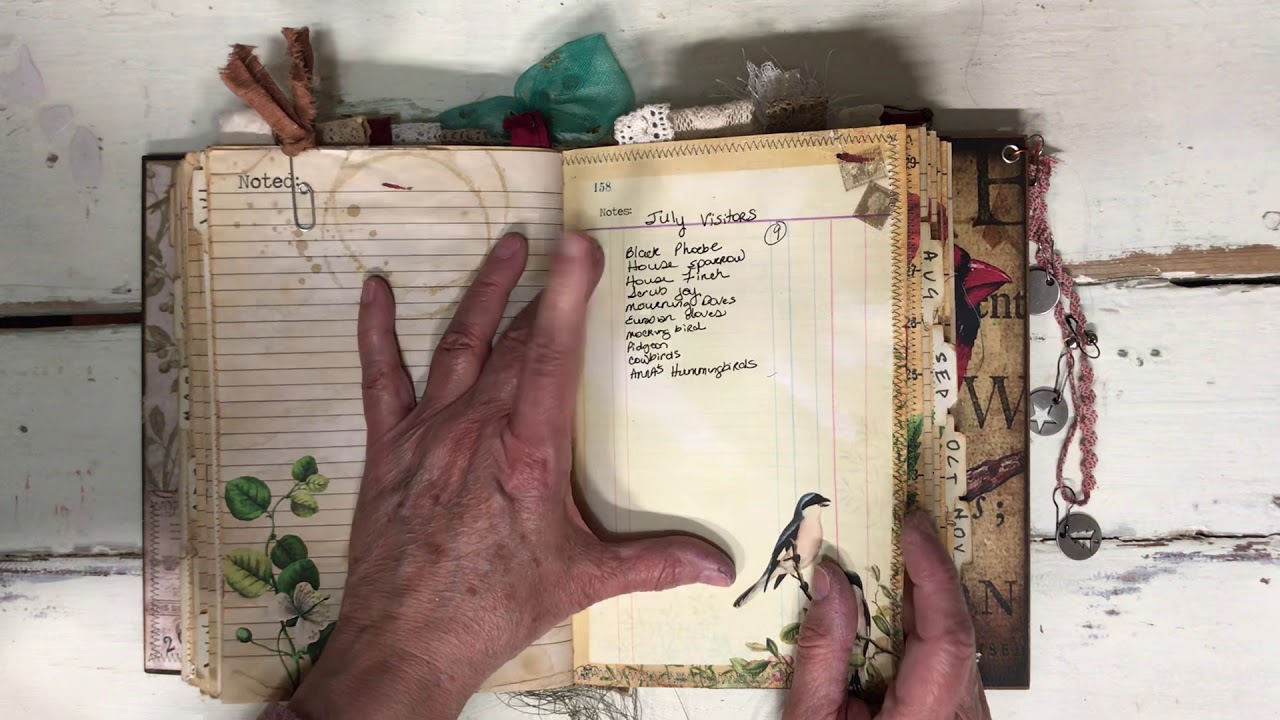 Noted:
158
Notes: July Visitors
9
Black Phoebe
House Sparrow
House Finch
Scrub Jay
Mourning Doves
Eurasian Doves
Mocking bird
Pidgeon
Cowbirds
AnnAs Hummingbirds
AUG
SEP
OCT
NOV
H
ent
W
;
N